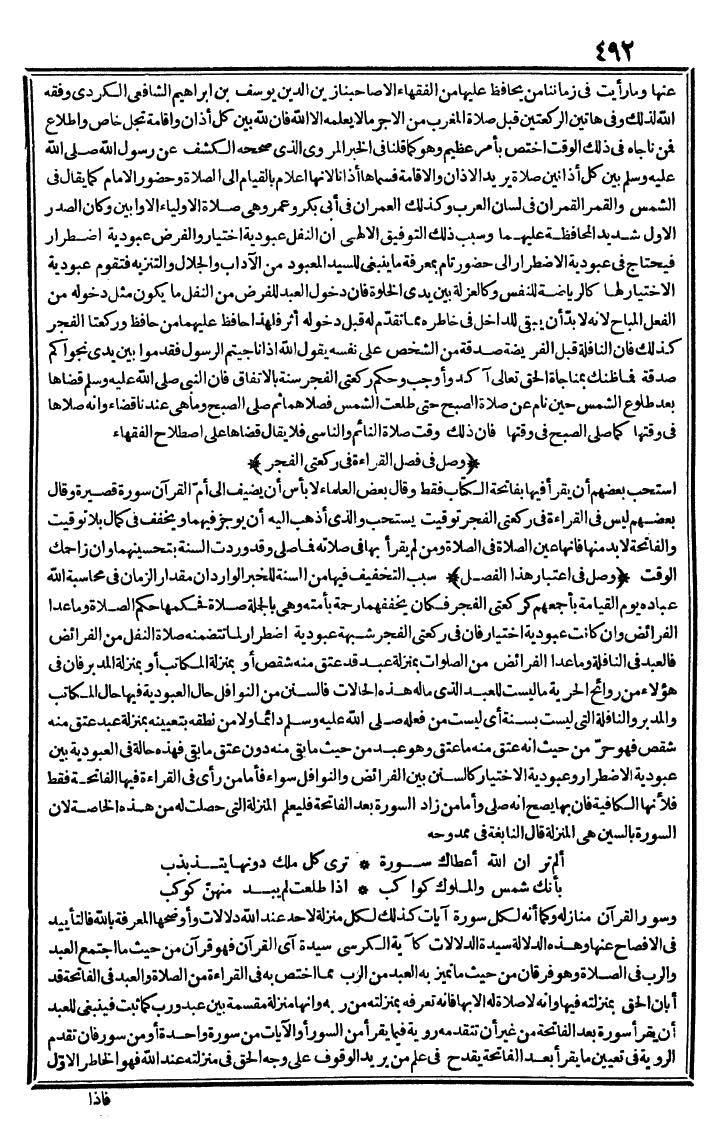 ٤٩٢
عنها ومارأيت فى زماننامن يحافظ عليهامن الفقهاء الاصاحبنازين الدين يوسف بن ابراهيم الشافعى الكردى وفقه
الله لذلك وفى هاتين الركعتين قبل صلاة المغرب من الاجر مالايعلمه الا الله فان لله بين كل أذان واقامة تجل خاص واطلاع
فمن ناجاه فى ذلك الوقت اختص بأمر عظيم وهو كما قلنافى الخبر المروى الذى صححه الكشف عن رسول الله صلى الله
عليه وسلم بين كل أذانين صلاة يريد الاذان والاقامة فسماها أذانالانها اعلام بالقيام الى الصلاة وحضور الامام كما يقال فى
الشمس والقمر القمران فى لسان العرب وكذلك العمران فى أبى بكر وعمر وهى صلاة الاولياء الاوابين وكان الصدر
الاول شديد المحافظة عليهما وسبب ذلك التوفيق الالهى ان النفل عبودية اختيار والفرض عبودية اضطرار
فيحتاج فى عبودية الاضطرار الى حضور تام بمعرفة ما ينبغى للسيد المعبود من الآداب والجلال والتنزيه فتقوم عبودية
الاختيار لها كالرياضة للنفس وكالعزلة بين يدى الخلوة فان دخول العبد للفرض من النفل ما يكون مثل دخوله من
الفعل المباح لانه لا بدّ أن يبقى للداخل فى خاطره مما تقدّم له قبل دخوله أثر فلهذا حافظ عليهمامن حافظ وركعتا الفجر
كذلك فان النافلة قبل الفريضة صدقة من الشخص على نفسه يقول الله اذا ناجيتم الرسول فقدموا بين يدى نجواكم
صدقة فاظنك بمناجاة الحق تعالى آكد وأوجب وحكم ركعتى الفجر سنة بالاتفاق فان النبى صلى الله عليه وسلم قضاها
بعد طلوع الشمس حين نام عن صلاة الصبح حتى طلعت الشمس فصلاهما ثم صلى الصبح وماهى عندنا قضاء وانه صلاها
فى وقتها كما صلى الصبح فى وقتها فان ذلك وقت صلاة النائم والناسى فلايقال قضاها على اصطلاح الفقهاء
﴿وصل فى فصل القراءة فى ركعتى الفجر﴾
استحب بعضهم أن يقرأ فيها بفاتحة الكتاب فقط وقال بعض العلماء لا بأس أن يضيف الى أمّ القرآن سورة قصيرة وقال
بعضهم ليس فى القراءة فى ركعتى الفجر توقيت يستحب والذى أذهب اليه أن يوجز فيهما ويخفف فى كمال بلا توقيت
والفاتحة لابد منها فانها عين الصلاة فى الصلاة ومن لم يقرأ بها فى صلاته فماصلى وقد وردت السنة بتحسينهما وان زاحمك
الوقت ﴿وصل فى اعتبار هذا الفصل﴾ سبب التخفيف فيها من السنة للخبر الوارد ان مقدار الزمان فى محاسبة الله
عباده يوم القيامة بأجمعهم كركعتى الفجر فكان يخففهما رحمة بأمته وهى بالجلة صلاة فحكمها حكم الصلاة وماعدا
الفرائض وان كانت عبودية اختيار فان فى ركعتى الفجر شبهة عبودية اضطرار لما تتضمنه صلاة النفل من الفرائض
فالعبد فى النافلة وماعدا الفرائض من الصلوات بمنزلة عبد قد عتق منه شقص أو بمنزلة المكاتب أو بمنزلة المدبر فان فى
هؤلاء من روائح الحرية ماليست للعبد الذى ماله هذه الحالات فالسنن من النوافل حال العبودية فيها حال المكاتب
والمدبر والنافلة التى ليست بسنة أى ليست من فعله صلى الله عليه وسلم دائما ولا من نطقه بتعيينه بمنزلة عبد عتق منه
شقص فهو حرّ من حيث انه عتق منه ما عتق وهو عبد من حيث ما بقى منه دون عتق ما بقى فهذه حالة فى العبودية بين
عبودية الاضطرار وعبودية الاختيار كالسنن بين الفرائض والنوافل سواء فأما من رأى فى القراءة فيها الفاتحة فقط
فلأنها الكافية فان بها يصح انه صلى وأما من زاد السورة بعد الفاتحة فليعلم المنزلة التى حصلت له من هذه الخاصة لان
السورة بالسين هى المنزلة قال النابغة فى ممدوحه
ألم تر ان الله أعطاك سورة * ترى كل ملك دونها يتذبذب
بأنك شمس والملوك كواكب * اذا طلعت لم يبد منهنّ كوكب
وسور القرآن منازله وكما أنه لكل سورة آيات كذلك لكل منزلة لاحد عند الله دلالات وأوضحها المعرفة بالله فالتأييد
فى الافصاح عنها وهذه الدلالة سيدة الدلالات كآية الكرسى سيدة آى القرآن فهو قرآن من حيث ما اجتمع العبد
والرب فى الصلاة وهو فرقان من حيث ما تميز به العبد من الرب مما اختص به فى القراءة من الصلاة والعبد فى الفاتحة قد
أبان الحق بمنزلته فيها وانه لاصلاة له الابها فانه تعرفه بمنزلته من ربه وانها منزلة مقسمة بين عبد ورب كما ثبت فينبغى للعبد
أن يقرأ سورة بعد الفاتحة من غير أن تتقدمه روية فيما يقرأ من السور أو الآيات من سورة واحدة أو من سور فان تقدم
الروية فى تعيين ما يقرأ بعد الفاتحة يقدح فى علم من يريد الوقوف على وجه الحق فى منزلته عند الله فهو الخاطر الاوّل
فاذا